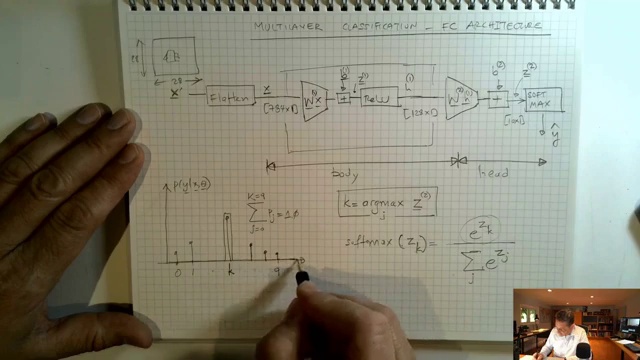 MULTILAYER CLASSIFICATION - FC ARCHITECTURE
28
28
x'
Flatten
x
[784x1]
W⁽¹⁾x
b⁽¹⁾
+
z⁽¹⁾
ReLU
h⁽¹⁾
[128x1]
W⁽²⁾h⁽¹⁾
b⁽²⁾
+
z⁽²⁾
[10x1]
SOFT
MAX
ŷ
body
head
p(y|x,θ)
K=9
∑ p_j = 1.0
j=0
0 1 k 9
k = argmax z⁽²⁾
softmax (z_k) = e^{z_k} / ∑_j e^{z_j}